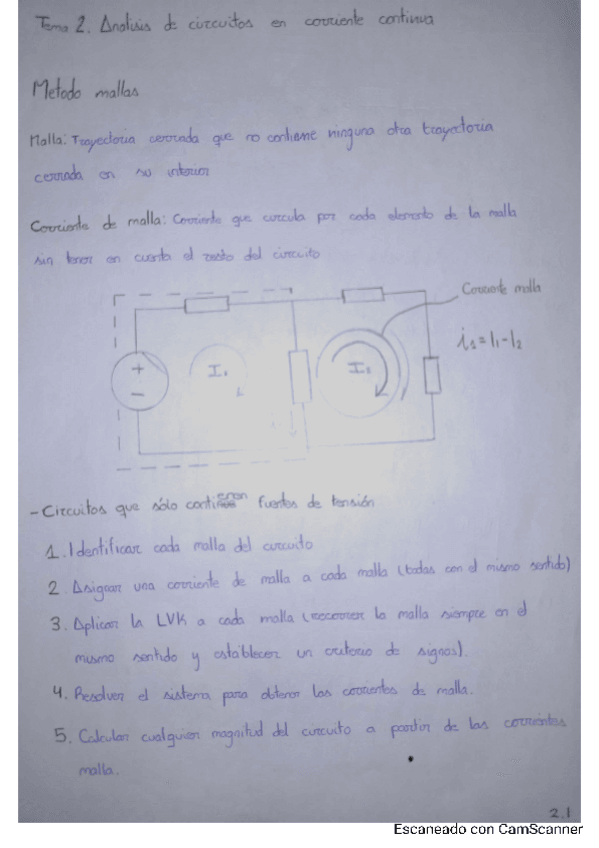 Tema 2. Analisis de circuitos en corriente continua
Metodo mallas
Malla: Trayectoria cerrada que no contiene ninguna otra trayectoria
cerrada en su interior
Corriente de malla: Corriente que circula por cada elemento de la malla
sin tener en cuenta el resto del circuito
Corriente malla
i₃ = I₁ - I₂
+
-
I₁
I₂
- Circuitos que sólo contienen fuentes de tensión
1. Identificar cada malla del circuito
2. Asignar una corriente de malla a cada malla (todas con el mismo sentido)
3. Aplicar la LVK a cada malla (recorrer la malla siempre en el
mismo sentido y establecer un criterio de signos).
4. Resolver el sistema para obtener las corrientes de malla.
5. Calcular cualquier magnitud del circuito a partir de las corrientes
malla.
2.1
Escaneado con CamScanner